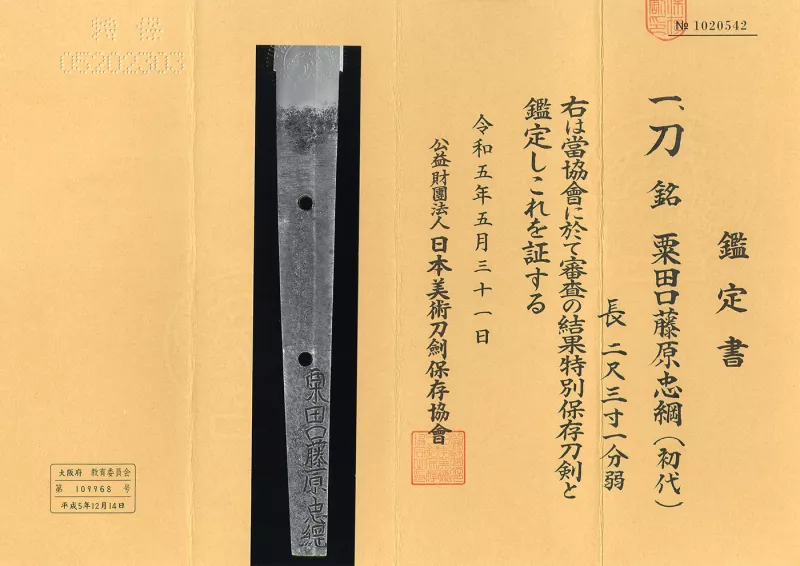 № 1020542
鑑定書
一、刀 銘 粟田口藤原忠綱(初代)
長 二尺三寸一分弱
右は當協會に於て審査の結果特別保存刀剣と
鑑定しこれを証する
令和五年五月三十一日
公益財團法人 日本美術刀劍保存協會
粟田口藤原忠綱
特保
05202303
大阪府 教育委員会
第 109968 号
平成5年12月14日